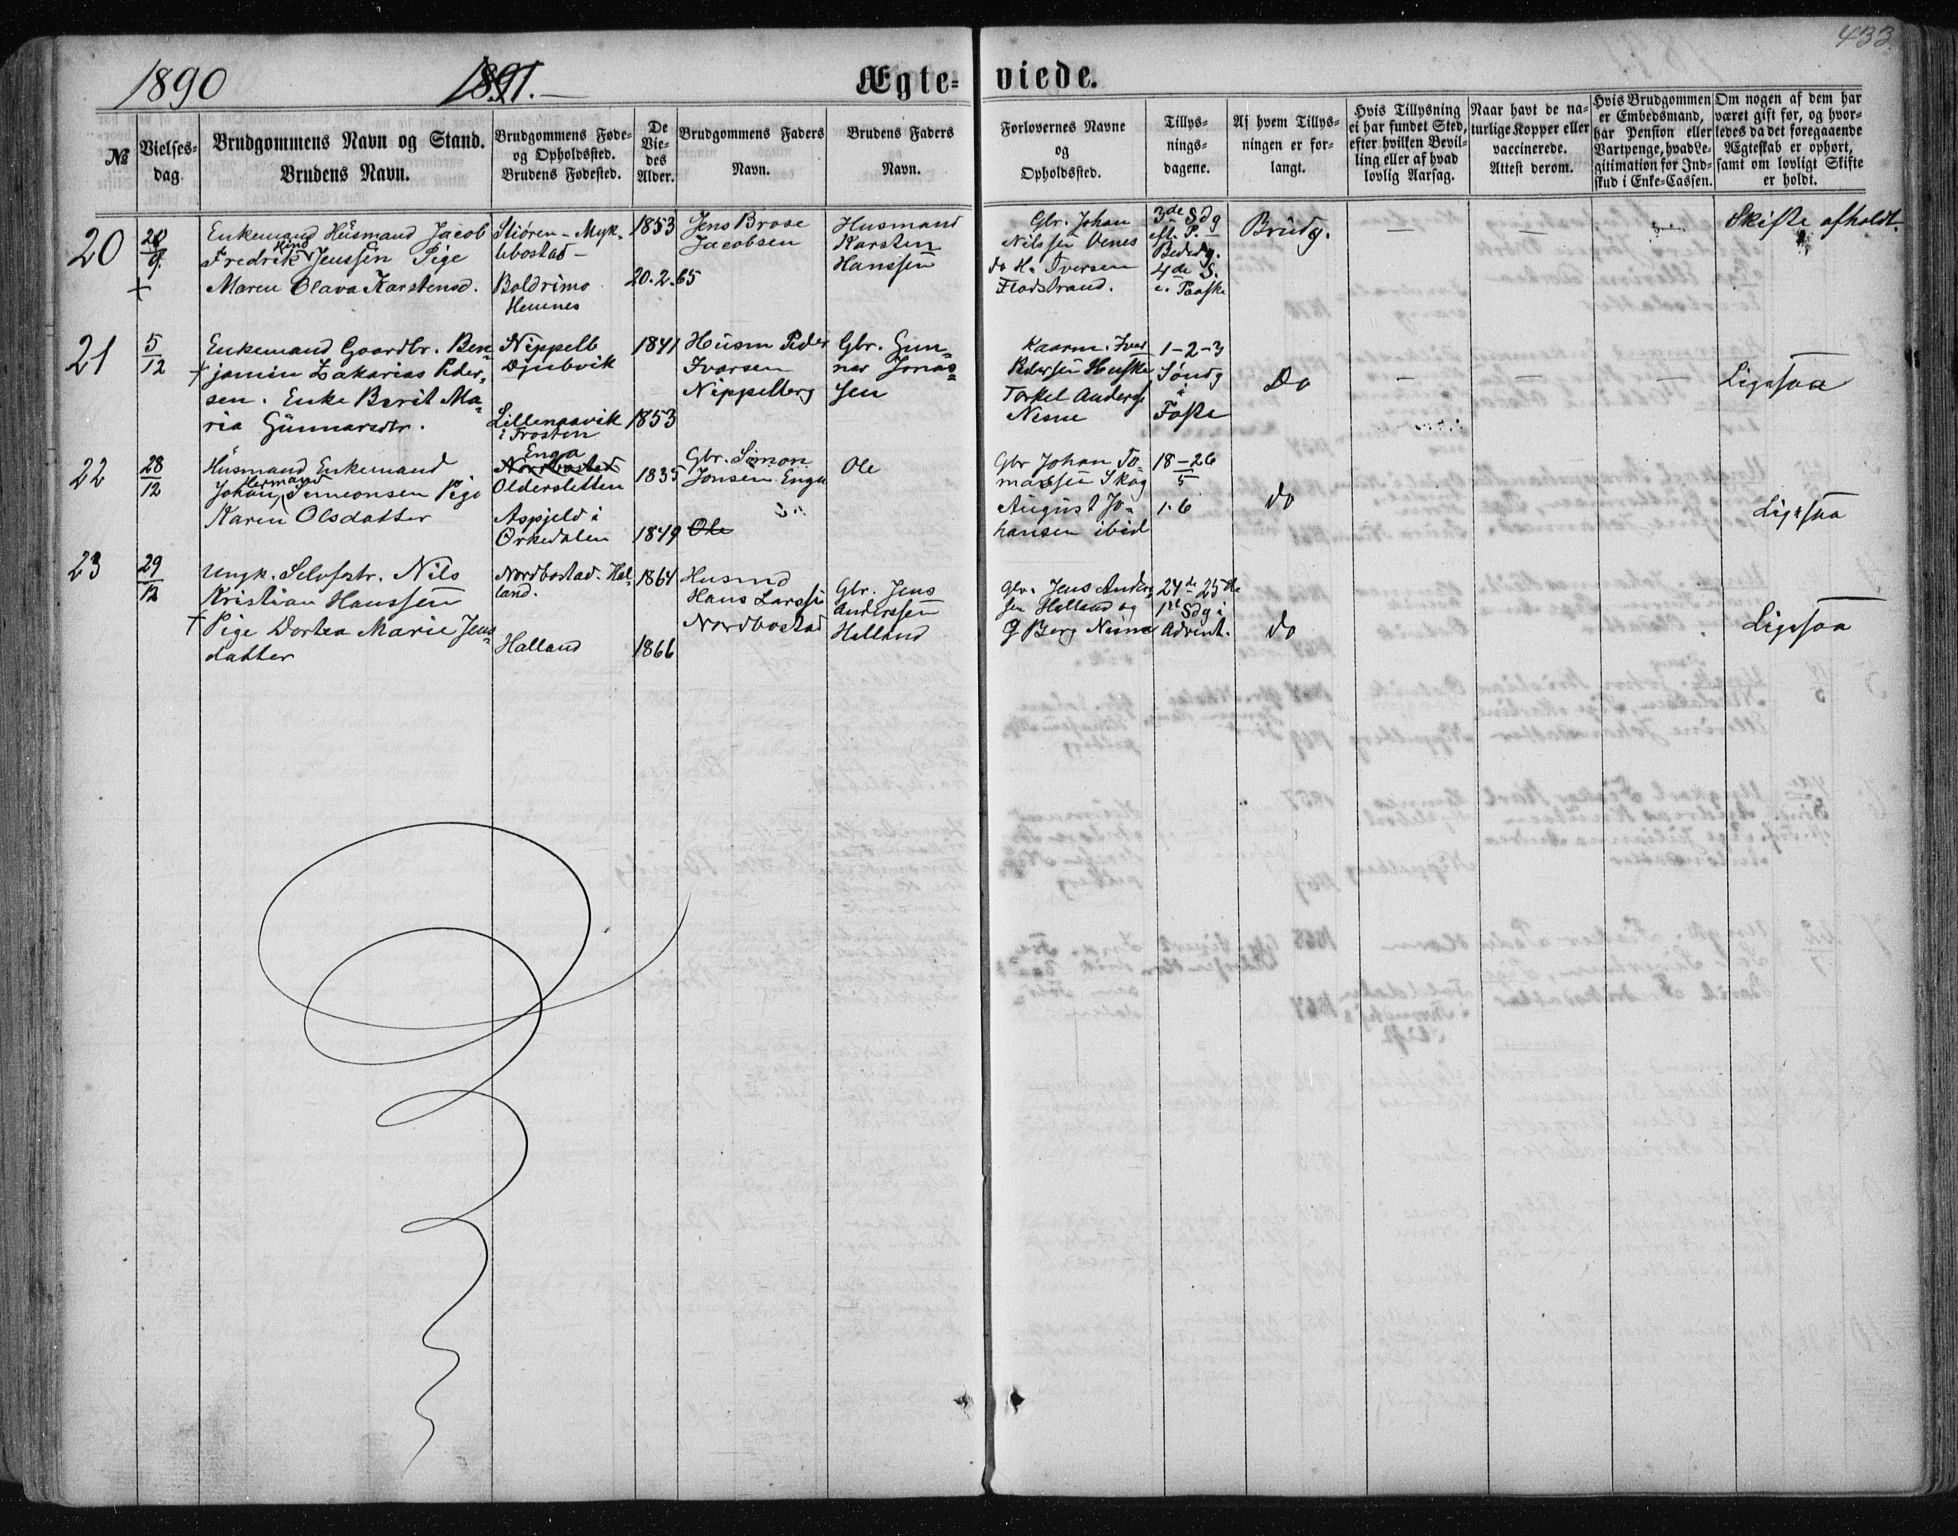 433.
1890 1891. — Ægte- viede.
№
Vielses-
dag.
Brudgommens Navn og Stand.
Brudens Navn.
Brudgommens Føde-
og Opholdssted.
Brudens Fødested.
De
Vie-
des
Alder.
Brudgommens Faders
Navn.
Brudens Faders
Navn.
Forlovernes Navne
og
Opholdssted.
Tillys-
nings-
dagene.
Af hvem Tillys-
ningen er for-
langt.
Hvis Tillysning
ei har fundet Sted,
efter hvilken Bevil-
ling eller af hvad
lovlig Aarsag.
Naar havt de na-
turlige Kopper eller
vaccinerede.
Attest derom.
Hvis Brudgommen
er Embedsmand,
har Pension eller
Vartpenge, hvad Le-
gitimation for Ind-
skud i Enke-Cassen.
Om nogen af dem har
været gift før, og hvor-
ledes da det foregaaende
Ægteskab er ophørt,
samt om lovligt Skifte
er holdt.
20
Enkemand Husmand Jacob
Fredrik Jenssen Pige
Maren Olava Karstensd.
Støren - Myk-
lebostad -
Boldrimo
Hemnes
1853
20.2.65
Jens Brose
Jacobsen
Husmand
Karsten
Hanssen
Gbr. Johan
Nilssen
do H. Iversen
Flodstrand.
3de Sdg
eft. P. g
Bededg.
4de S.
e. Paaske
Brudg.
— — —
Skifte afholdt.
21
5/12
Enkemand Gaardbr. Ben-
jamin Zakarias Peder-
sen. Enke Berit Ma-
ria Gunnarsdtr.
Nippelb
Djubvik
Lillengsvik
i Frosten
1841
1853
Husm Peder
Ivarsen
Nippelberg
Gbr. Gun-
nar Jonas-
sen
Kaarm. Iver
Pedersen Huske
Torkel Anders
Nesne
1-2-3
Søndg
i
Faste
Do
— — —
Ligesaa
22
28/12
Husmand Enkemand
Herman
Johan Simeonsen Pige
Karen Olsdatter
Enga
Nordbostad
Oldersletten
Aspjeld i
Orkedalen
1835
1849
Gbr. Simon
Jonsen Enga
Ole
Ole
Gbr Johan To-
massen Skog
August Jo-
hansen ibid
18-26
5
1.6
do
Ligesaa
23
29/12
Ungk. Selvfostr. Nils
Kristian Hanssen
Pige Dortea Marie Jens-
datter
Nordbostad. Hal-
land.
Halland
1864
1866
Husmd
Hans Larssen
Nordbostad
Gbr. Jens
Anderssen
Halland
Gbr. Jens Anders
sen Halland og
G Berg Nesne
24de 25de
1ste Sdg i
Advent.
do
Ligesaa